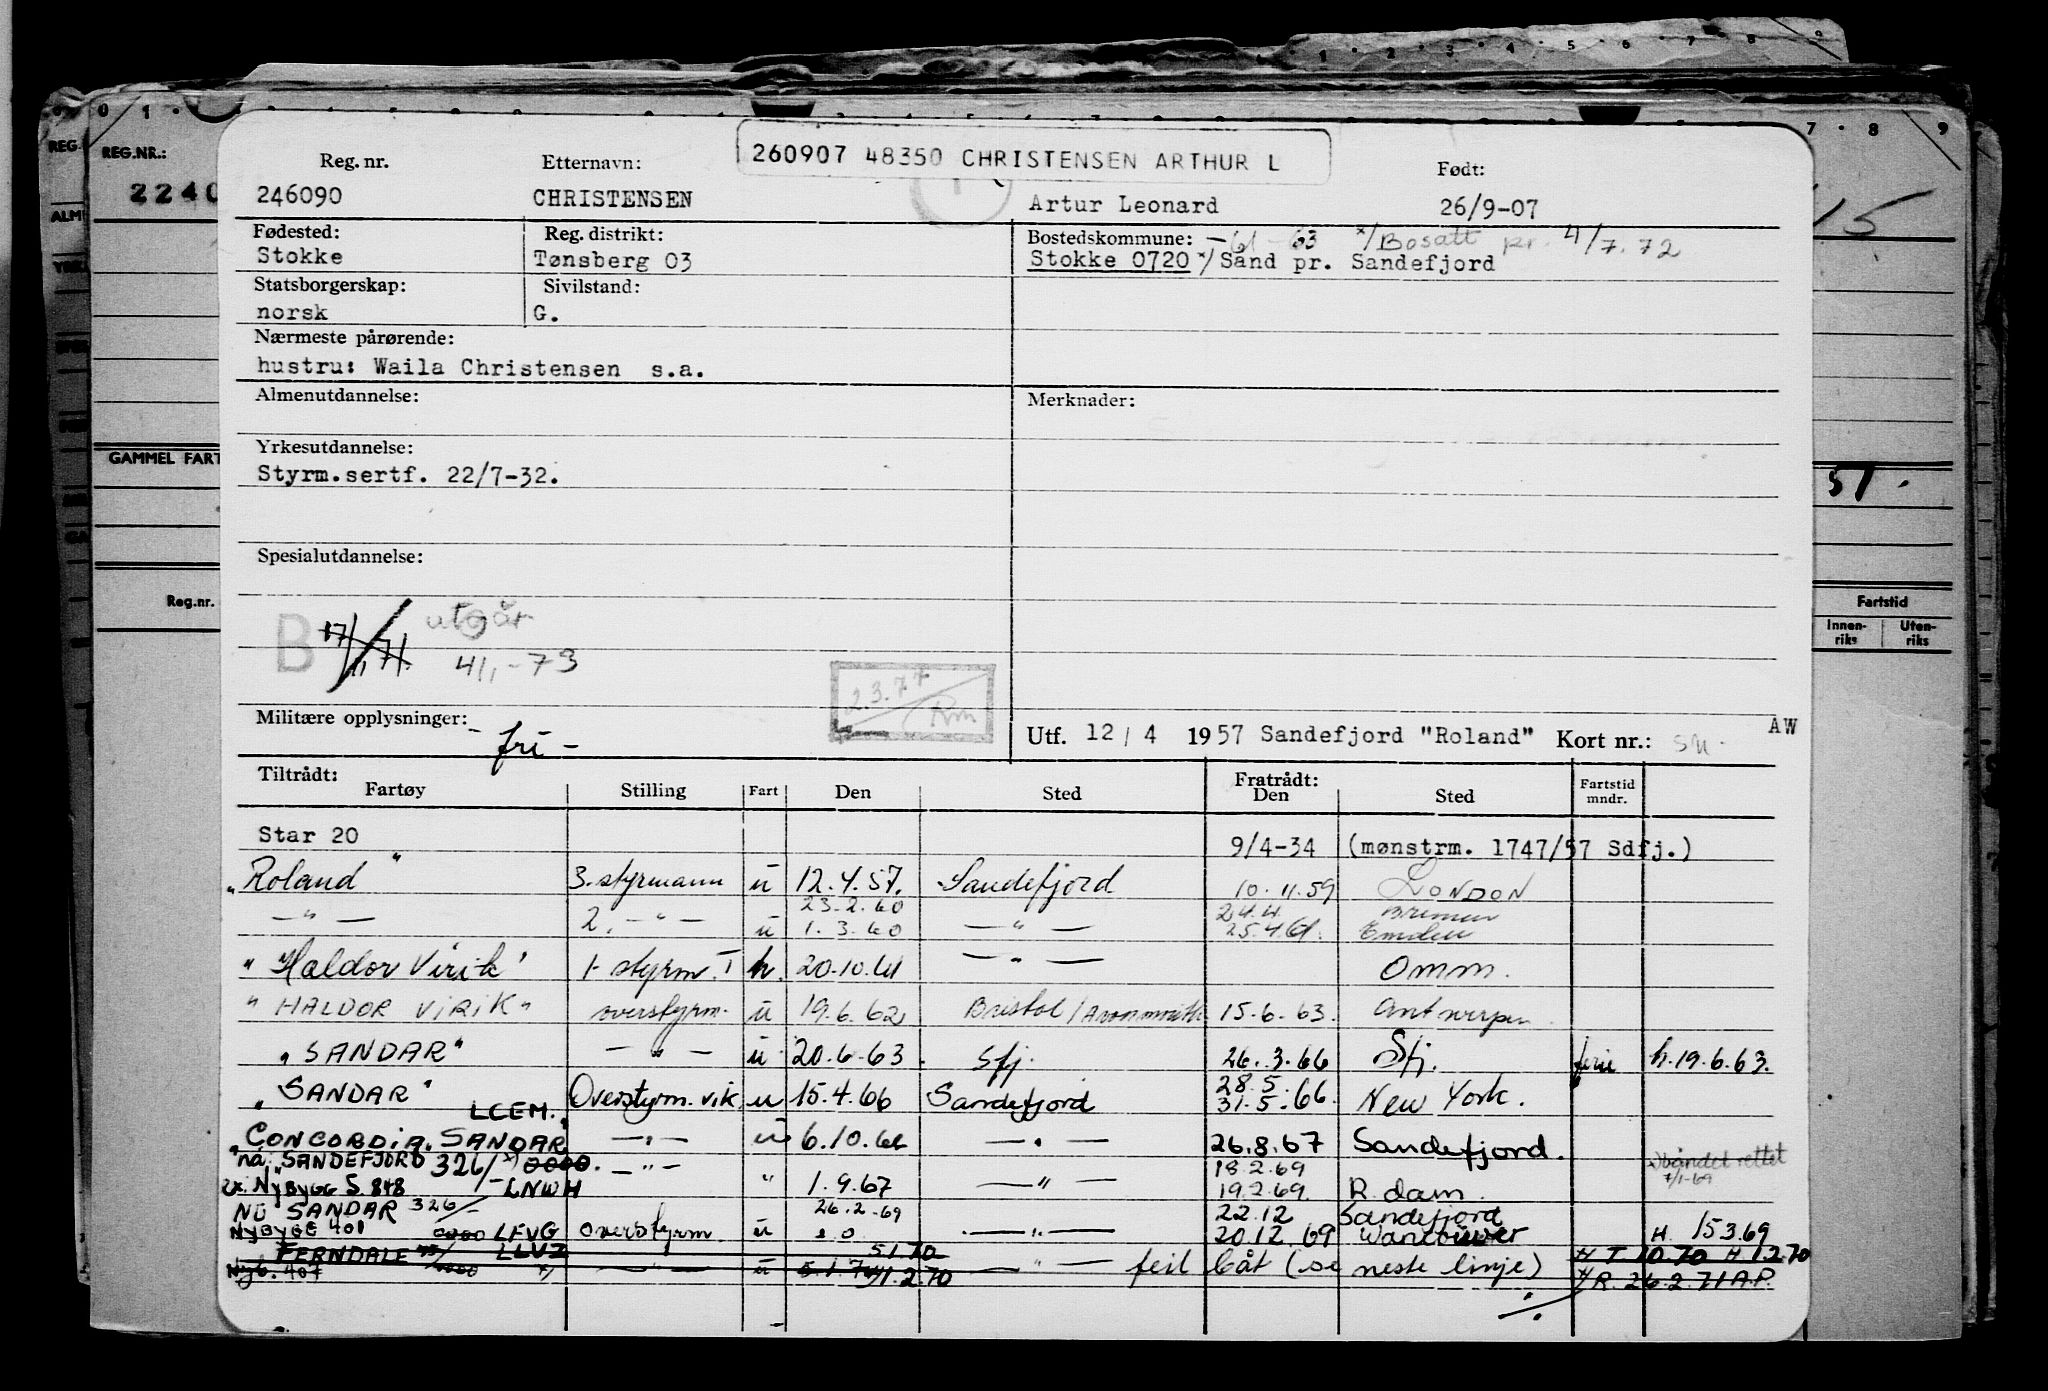 260907 48350 CHRISTENSEN ARTHUR L
Reg. nr. Etternavn: Født:
246090 CHRISTENSEN Artur Leonard 26/9-07
Fødested: Reg. distrikt: Bostedskommune: -61-63 x/Bosatt pr. 4/7.72
Stokke Tønsberg 03 Stokke 0720 x/Sand pr. Sandefjord
Statsborgerskap: Sivilstand:
norsk G.
Nærmeste pårørende:
hustru: Waila Christensen s.a.
Almenutdannelse: Merknader:
Yrkesutdannelse:
Styrm.sertf. 22/7-32.
Spesialutdannelse:
B 17/11.71. utgår
41,-73
2.3.77
Rm
Militære opplysninger:
- fri -
Utf. 12/4 1957 Sandefjord "Roland" Kort nr.: AW
Tiltrådt: Fratrådt:
Fartøy Stilling Fart Den Sted Den Sted Fartstid mndr.
Star 20 9/4-34 (mønstrm. 1747/57 Sdfj.)
"Roland" 3. styrmann u 12.4.57. Sandefjord 10.11.59 LONDON
23.2.60 24.4 Bremen
—"— 2. —"— u 1.3.60 —"— 25.4.61. Emden
"Haldor Virik" 1. styrm. I h. 20.10.61 —"— Omm.
"HALDOR VIRIK" overstyrm. u 19.6.62 Bristol/Avonmouth 15.6.63. Antwerpen
"SANDAR" —"— u 20.6.63. Sfj. 26.3.66 Sfj. ferie h. 19.6.63.
"SANDAR" Overstyrm. vik u 15.4.66 Sandefjord 28.5. 31.5.66. New York.
LCEM.
"CONCORDIA SANDAR" —"— u 6.10.66 —"— 26.8.67 Sandefjord.
nå: "SANDEFJORD 326/- x) 0000. —"— 18.2.69 x) båndet rettet
ex. NYBYGG S. 848 LNWH " 1.9.67 —"— 19.2.69. R.dam. 7/1-69
NÅ SANDAR 326/- 26.2.69 22.12 Sandefjord
NYBYGG 401 0000 LFVG overstyrm. u —"— 20.12.69 Vancouver H 15.3.69
FERNDALE LLVZ 5.1.70 H T 10.70 H.1.2.70
Nyb. 407 x/ —"— u 5.1.70 1.2.70 —"— feil båt (se neste linje) x/R. 26.2.71 A.P.
REG.NR.:
2240
GAMMEL FART
Reg.nr.
57.
Fartstid
Innenriks Utenriks